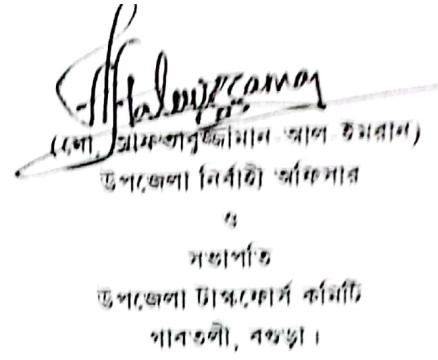 (মো. আফতাবুজ্জামান আল ইমরান)
উপজেলা নির্বাহী অফিসার
ও
সভাপতি
উপজেলা টাস্কফোর্স কমিটি
গাবতলী, বগুড়া।